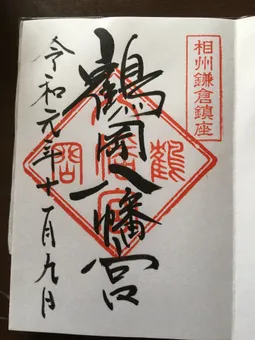 相州鎌倉鎮座
鶴岡八幡宮
令和元年十一月九日